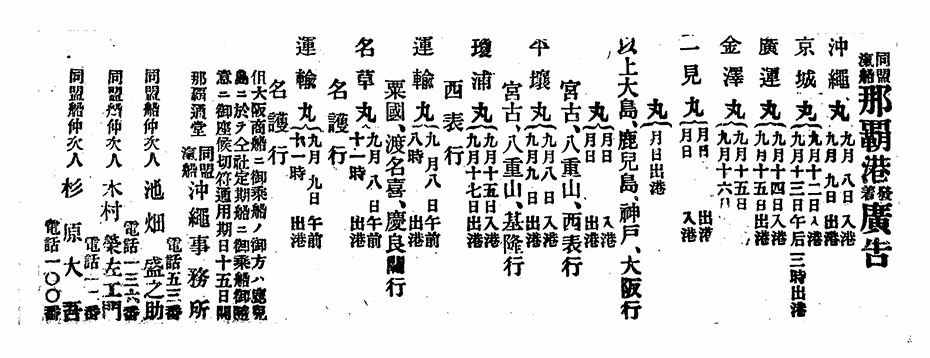 同盟滊船那覇港發着廣告
沖繩丸 九月八日入港
九月九日出港
京城丸 九月十二日入港
九月十三日午后三時出港
廣運丸 九月十四日入港
九月十五日出港
金澤丸 九月十五日
九月十六日
二見丸 月日出港
月日入港
丸 月日出港
以上大島、鹿兒島、神戸、大阪行
丸 月日入港
月日出港
宮古、八重山、西表行
平壤丸 九月八日入港
九月九日出港
宮古、八重山、基隆行
瓊浦丸 九月十五日入港
九月十七日出港
西表行
運輸丸 九月八日午前
八時出港
粟國、渡名喜、慶良間行
名草丸 九月八日午前
十一時出港
名護行
運輸丸 九月九日午前
十一時出港
名護行
但大阪商船ニ御乘船ノ御方ハ鹿兒
島ニ於テ仝社定期船ニ御乘船御隨
意ニ御座候切符通用期日十五日間
那覇通堂
同盟滊船沖繩事務所
電話五三番
同盟船仲次人 池畑盛之助
電話一三六番
同盟船仲次人 木村榮左工門
電話一一番
同盟船仲次人 杉原大吾
電話一〇〇番